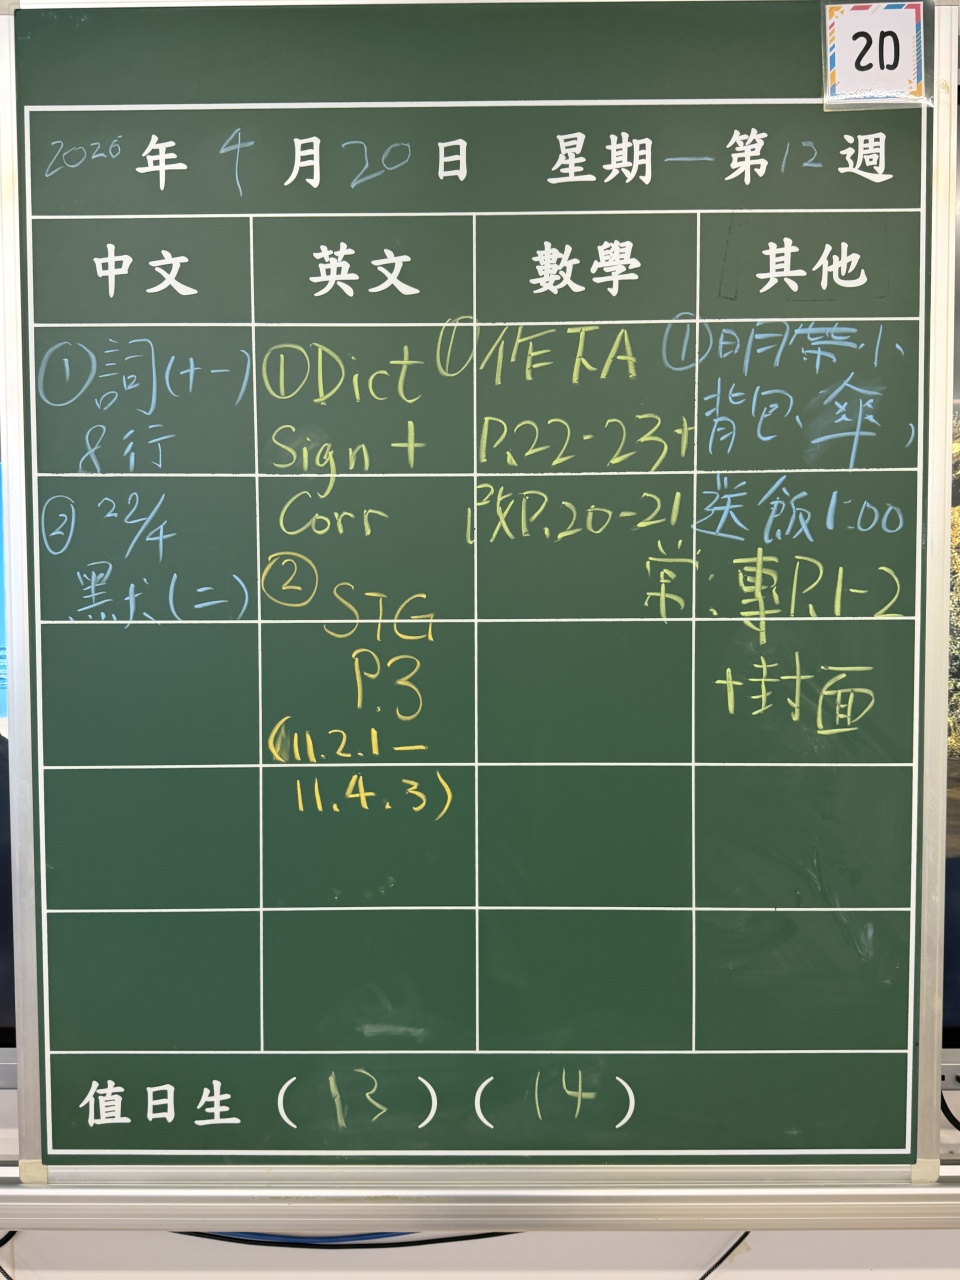 2D
2026年4月20日 星期一 第12週
中文 英文 數學 其他
①詞(十一)
8行
② 22/4
黑犬(二)
①Dict
Sign +
Corr
②
STG
P.3
(11.2.1—
11.4.3)
①作下A
P.22-23+
改P.20-21
①明帶小
背包、傘,
送飯1:00
常:專P.1-2
+封面
值日生(13)(14)